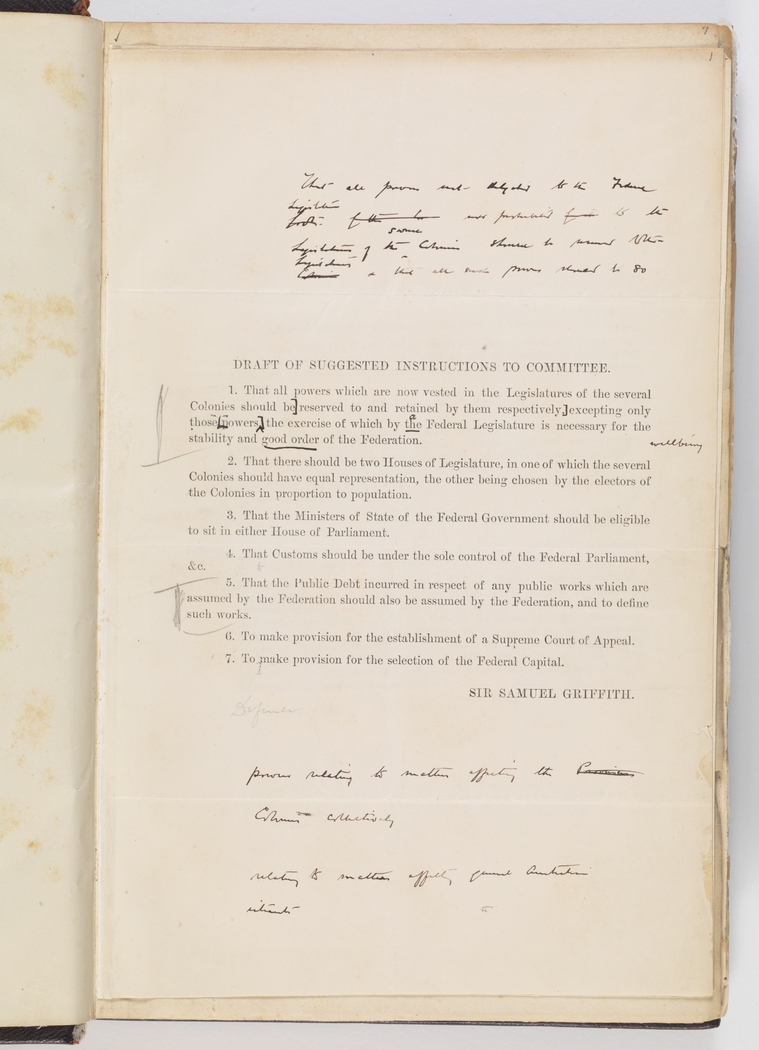 That all powers not delegated to the Federal
Legislature
of the
nor prohibited to the
several
Legislatures of the Colonies should be
Legislatures
Colonies that all such powers should be so
DRAFT OF SUGGESTED INSTRUCTIONS TO COMMITTEE.
1. That all powers which are now vested in the Legislatures of the several
Colonies should be] reserved to and retained by them respectively,] excepting only
those [powers] the exercise of which by the Federal Legislature is necessary for the
stability and good order of the Federation.
wellbeing
2. That there should be two Houses of Legislature, in one of which the several
Colonies should have equal representation, the other being chosen by the electors of
the Colonies in proportion to population.
3. That the Ministers of State of the Federal Government should be eligible
to sit in either House of Parliament.
4. That Customs should be under the sole control of the Federal Parliament,
&c.
5. That the Public Debt incurred in respect of any public works which are
assumed by the Federation should also be assumed by the Federation, and to define
such works.
6. To make provision for the establishment of a Supreme Court of Appeal.
7. To make provision for the selection of the Federal Capital.
SIR SAMUEL GRIFFITH.
Defence
powers relating to matters affecting the Provinces
Colonies collectively
relating to matters affecting general Australian
interests